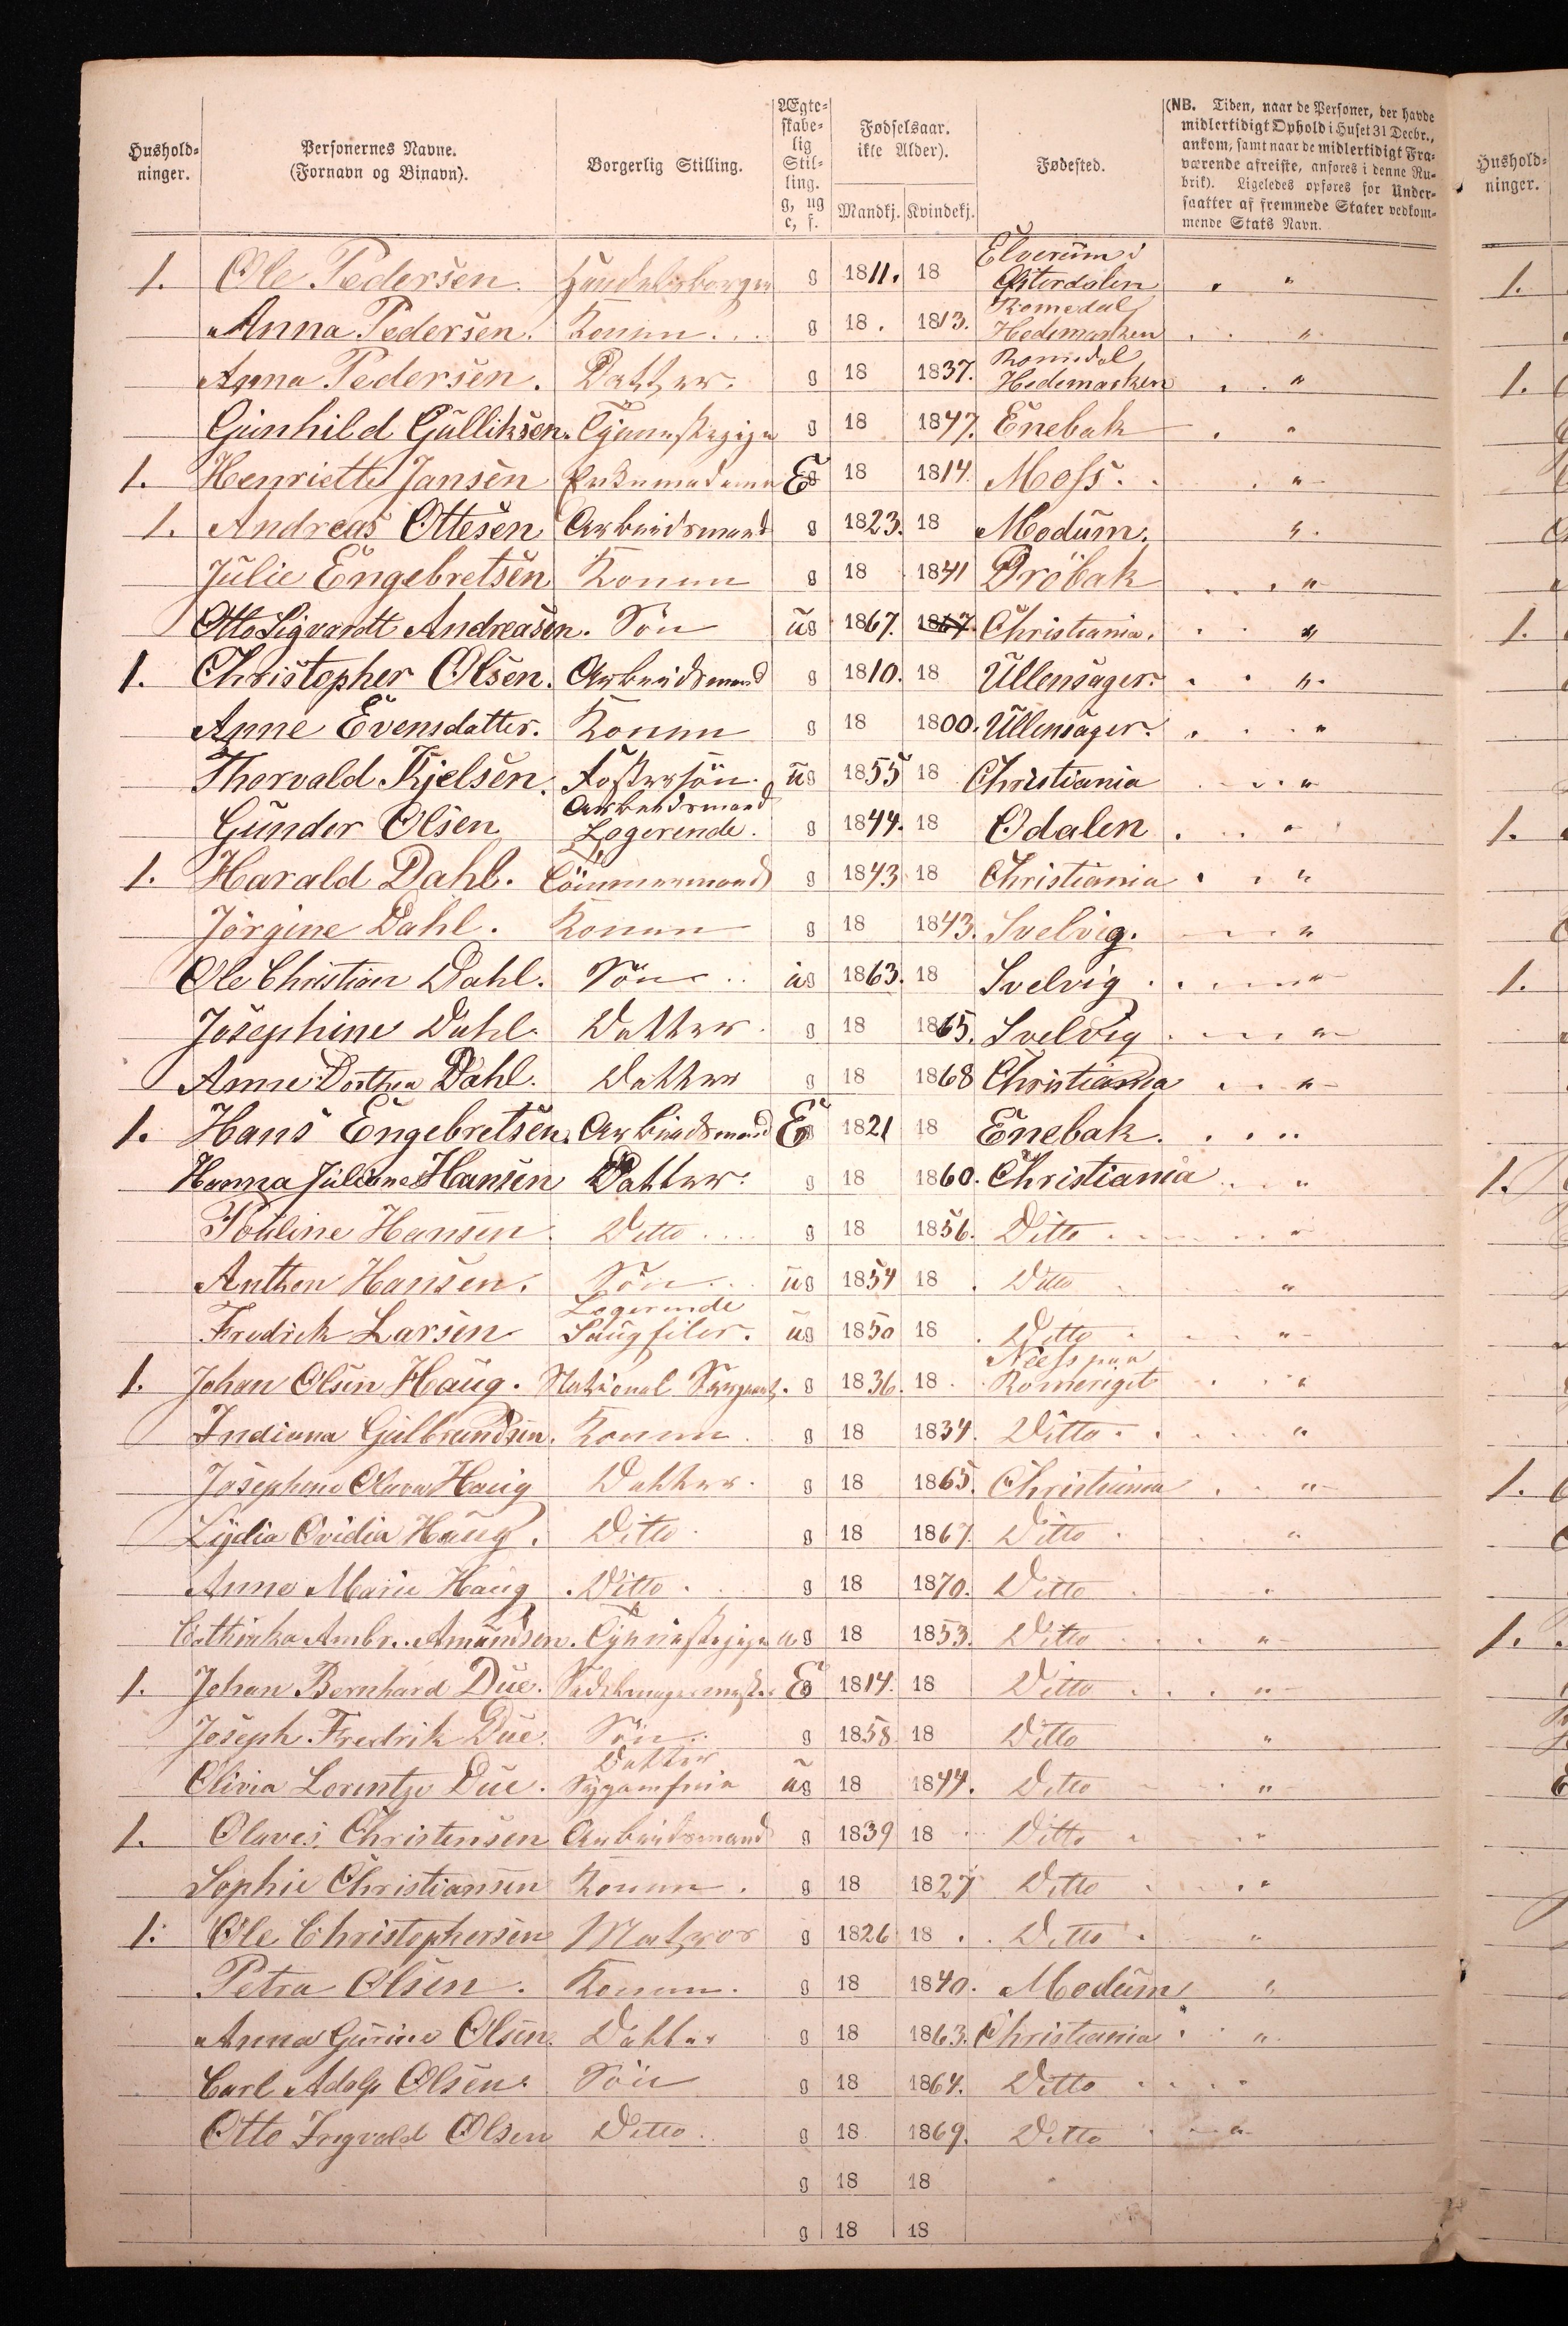 Hushold-
ninger.
Personernes Navne.
(Fornavn og Binavn).
Borgerlig Stilling.
Ægte-
skabe-
lig
Stil-
ling.
g, ug
e, f.
Fødselsaar.
ikke Alder).
Mandkj. Kvindekj.
Fødested.
(NB. Tiden, naar de Personer, der havde
midlertidigt Ophold i Huset 31 Decbr.,
ankom, samt naar de midlertidigt Fra-
værende afreiste, anføres i denne Ru-
brik). Ligeledes opføres for Under-
saatter af fremmede Stater vedkom-
mende Stats Navn.
Hushold-
ninger.
1. Ole Pedersen. Handelsborger g 1811. 18 Elverum i Østerdalen " 1.
Anna Pedersen. Konen g 18 1813. Romedal Hedemarken "
Anna Pedersen. Datter. g 18 1837. Romedal Hedemarken " 1.
Gunhild Gulliksen. Tjenestepige g 18 1847. Enebak "
1. Henriette Jansen E 18 1814. Moss. "
1. Andreas Ottesen Arbeidsmand g 1823. 18 Modum. "
Julie Engebretsen Konen g 18 1841 Dröbak "
Otto Sigvardt Andreasen. Sön ug 1867. 1867 Christiania. " 1.
1. Christopher Olsen. Arbeidsmand g 1810. 18 Ullensager. "
Anne Evensdatter. Konen g 18 1800. Ullensager. "
Thorvald Kjelsen. Fostersön. ug 1855 18 Christiania "
Gunder Olsen Arbeidsmand Logerende. g 1844. 18 Odalen " 1.
1. Harald Dahl. Tömmermand g 1843 18 Christiania "
Jörgine Dahl. Konen g 18 1843. Svelvig. "
Ole Christian Dahl. Sön ug 1863. 18 Svelvig " 1.
Josephine Dahl. Datter. g 18 1865. Svelvig "
Anne Dorthea Dahl. Datter g 18 1868 Christiania "
1. Hans Engebretsen. Arbeidsmand E 1821 18 Enebak.
Hanna Juliane Hansen Datter. g 18 1860. Christiania " 1.
Pouline Hansen. Ditto g 18 1856. Ditto "
Anthon Hansen. Sön ug 1854 18 Ditto "
Fredrik Larsen Logerende Saugfiler. ug 1850 18 Ditto "
1. Johan Olsen Haug. National Sergeant. g 1836. 18 Næss paa Romeriget "
Indiana Gulbrandsen. Konen g 18 1834. Ditto "
Josephine Olava Haug Datter. g 18 1865. Christiania " 1.
Lydia Ovidia Haug. Ditto g 18 1867. Ditto "
Anne Marie Haug Ditto g 18 1870. Ditto
Cathinka Ambr. Amundsen. Tjenestepige ug 18 1853. Ditto " 1.
1. Johan Bernhard Due. E 1814. 18 Ditto "
Joseph Fredrik Due. Sön g 1858 18 Ditto "
Olivia Lorentze Due. Datter ug 18 1844. Ditto "
1. Olaves Christensen Arbeidsmand g 1839 18 Ditto "
Sophie Christiansen Konen. g 18 1827 Ditto "
1. Ole Christophersen Matros g 1826 18 Ditto "
Petra Olsen. Konen. g 18 1840. Modum "
Anna Gurine Olsen. Datter g 18 1863. Christiania "
Carl Adolf Olsen. Sön g 18 1864. Ditto "
Otto Ingvald Olsen Ditto g 18 1869. Ditto "
g 18 18
g 18 18